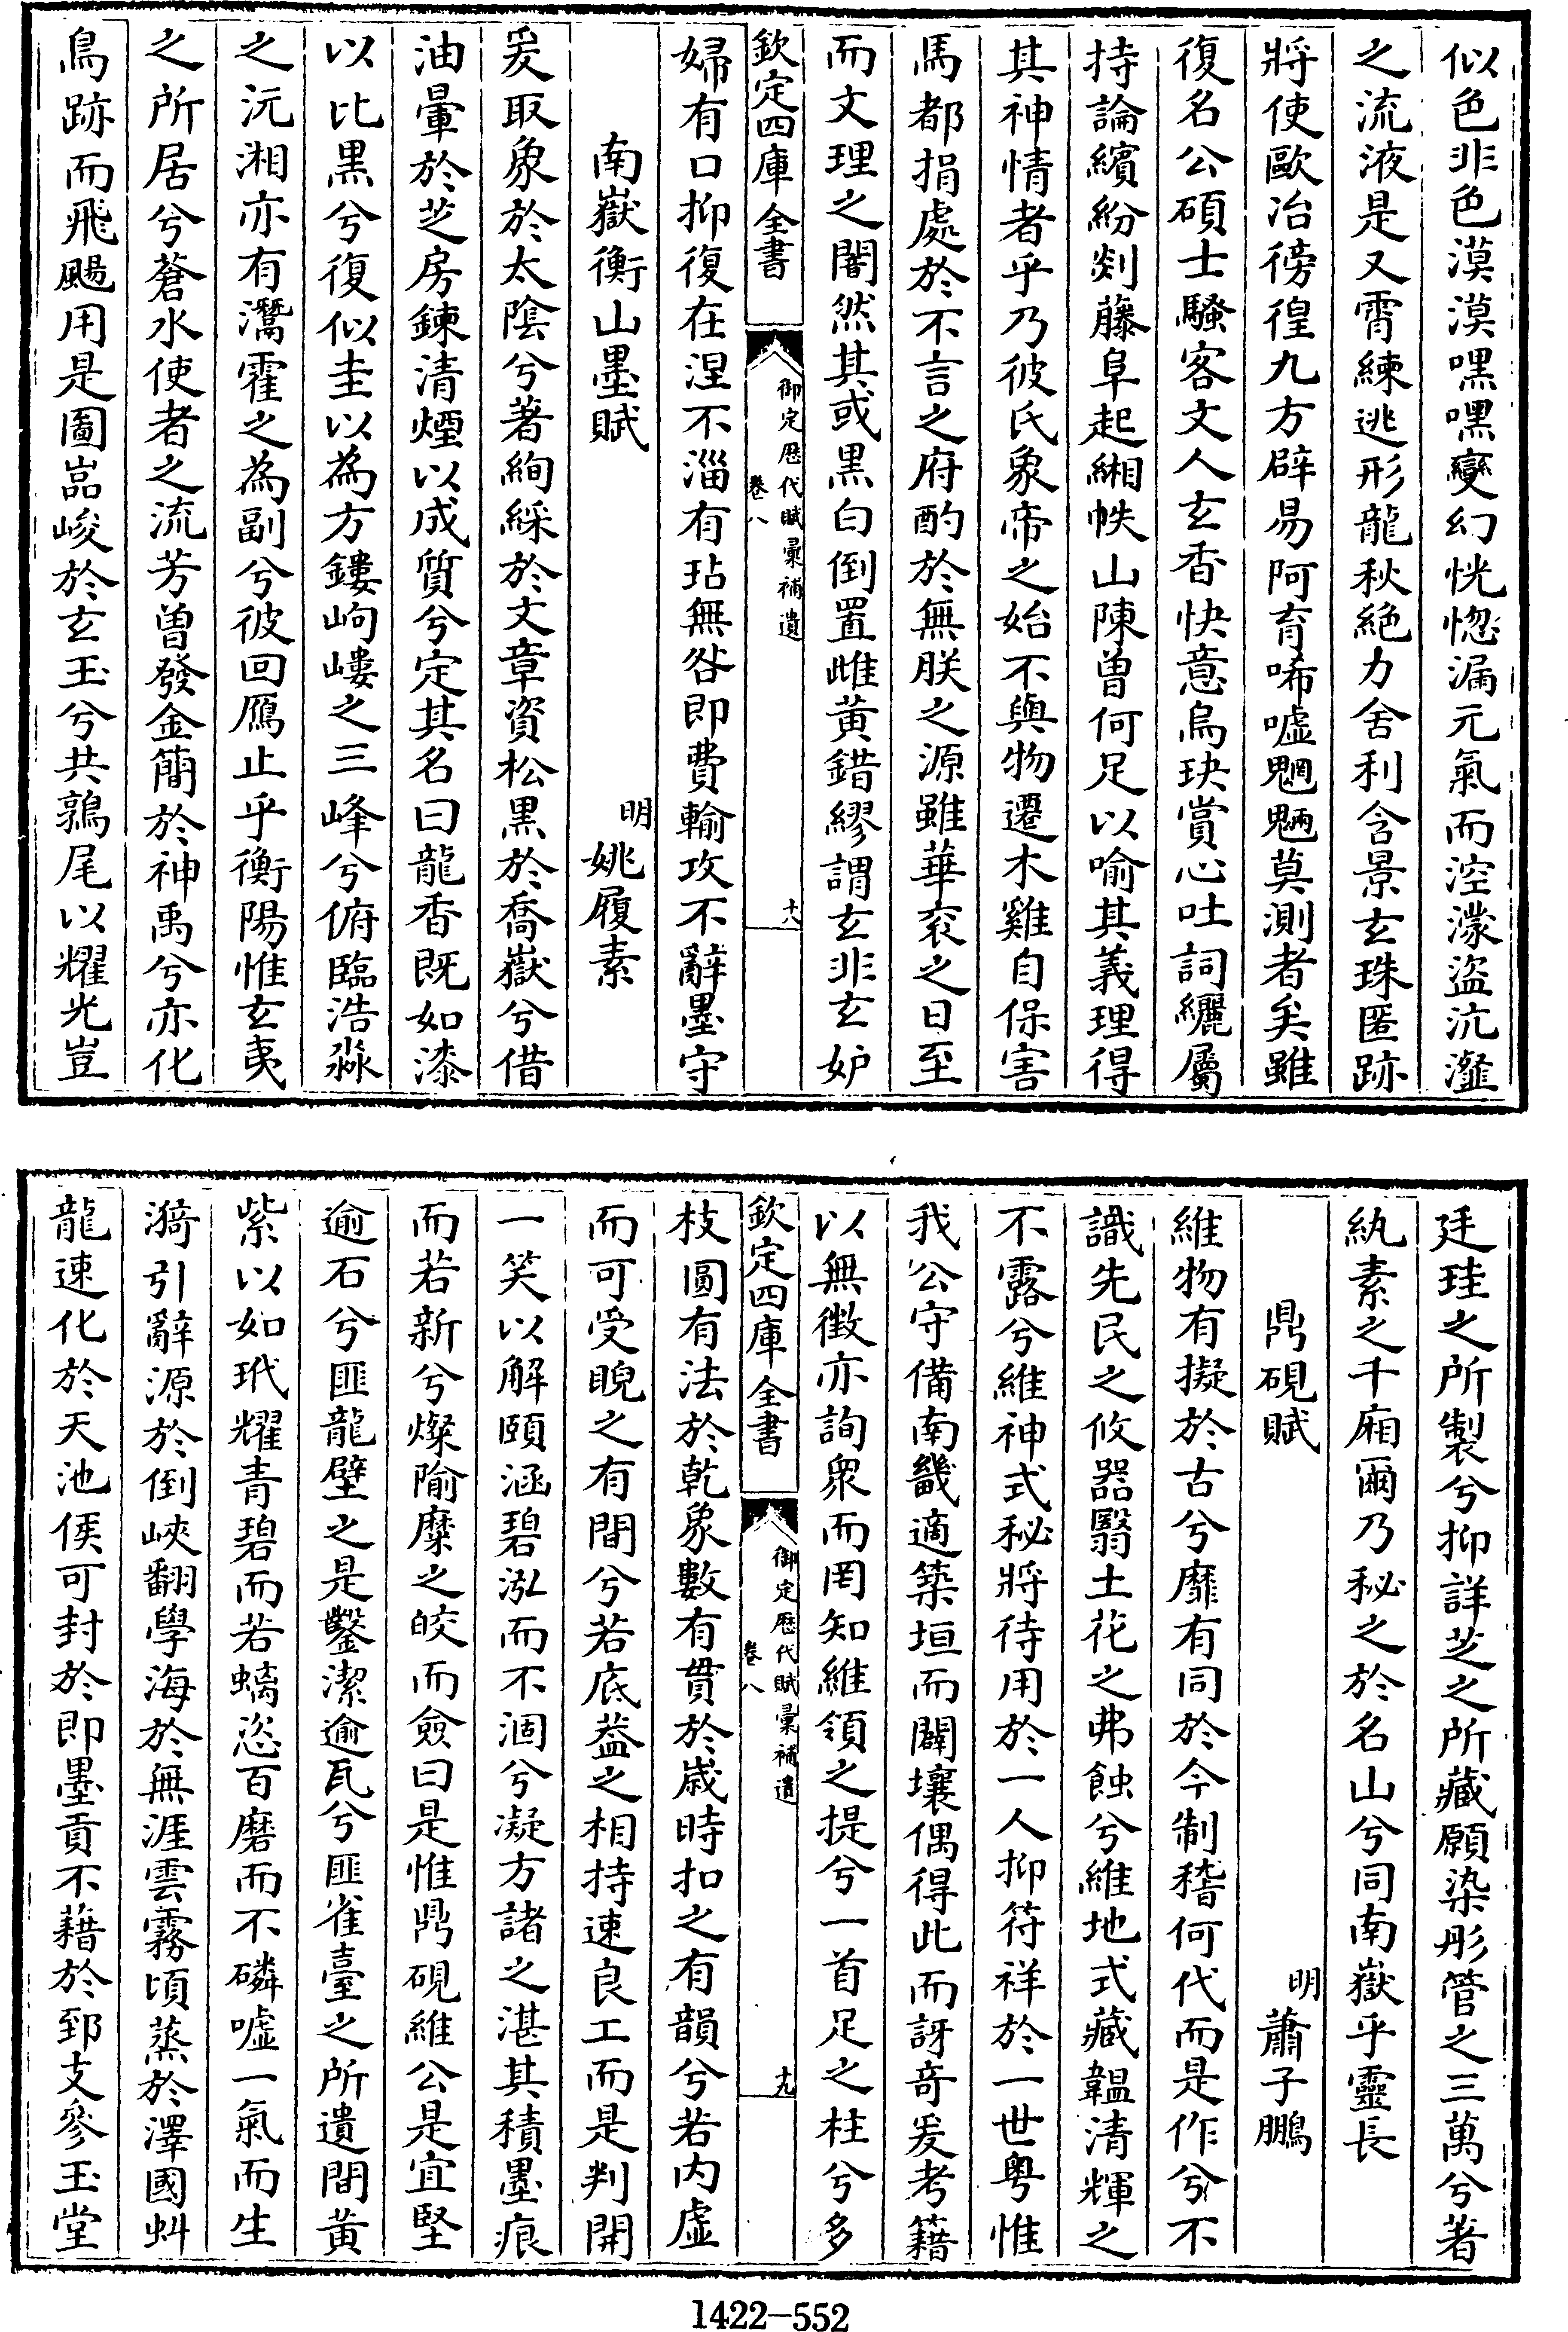 似色非色漠漠嘿嘿變幻恍惚漏元氣而涳濛盜沆瀣
之流液是又霄練逃形龍秋絕力舍利含景玄珠匿跡
將使歐冶徬徨九方辟易阿育唏噓魍魎莫測者矣雖
復名公碩士騷客文人玄香快意烏玦賞心吐詞纚屬
持論繽紛剡藤阜起緗帙山陳曾何足以喻其義理得
其神情者乎乃彼氏象帝之始不與物遷木雞自保害
馬都捐處於不言之府酌於無朕之源雖華衮之日至
而文理之闇然其或黑白倒置雌黃錯繆謂玄非玄妒
欽定四庫全書
御定歷代賦彙補遺
卷八
十八
婦有口抑復在涅不淄有玷無咎即費輸攻不辭墨守
南嶽衡山墨賦
明 姚履素
爰取象於太陰兮著絢綵於文章資松黑於喬嶽兮借
油暈於芝房鍊清煙以成質兮定其名曰龍香既如漆
以比黑兮復似圭以為方鏤岣嶁之三峰兮俯臨浩淼
之沅湘亦有灊霍之為副兮彼回鴈止乎衡陽惟玄夷
之所居兮蒼水使者之流芳曾發金簡於神禹兮亦化
鳥跡而飛颺用是圖嵒峻於玄玉兮共鶉尾以耀光豈
廷珪之所製兮抑詳芝之所藏願染彤管之三萬兮著
紈素之千廂爾乃秘之於名山兮同南嶽乎靈長
鼎硯賦
明 蕭子鵬
維物有擬於古兮靡有同於今制稽何代而是作兮不
識先民之攸器翳土花之弗蝕兮維地式藏韞清輝之
不露兮維神式秘將待用於一人抑符祥於一世粤惟
我公守備南畿適築垣而闢壤偶得此而訝竒爰考籍
以無徴亦詢衆而罔知維領之提兮一首足之柱兮多
欽定四庫全書
御定歷代賦彙補遺
卷八
十九
枝圓有法於乾象數有貫於歲時扣之有韻兮若内虛
而可受睨之有間兮若底葢之相持速良工而是判開
一笑以解頤涵碧泓而不涸兮凝方諸之湛其積墨痕
而若新兮燦隃糜之皎而僉曰是惟鼎硯維公是宜堅
逾石兮匪龍壁之是鑿潔逾瓦兮匪雀臺之所遺間黃
紫以如玳耀青碧而若螭恣百磨而不磷噓一氣而生
漪引辭源於倒峽翻學海於無涯雲霧頃蒸於澤國虯
龍速化於天池侯可封於即墨貢不藉於郅支參玉堂
1422-552